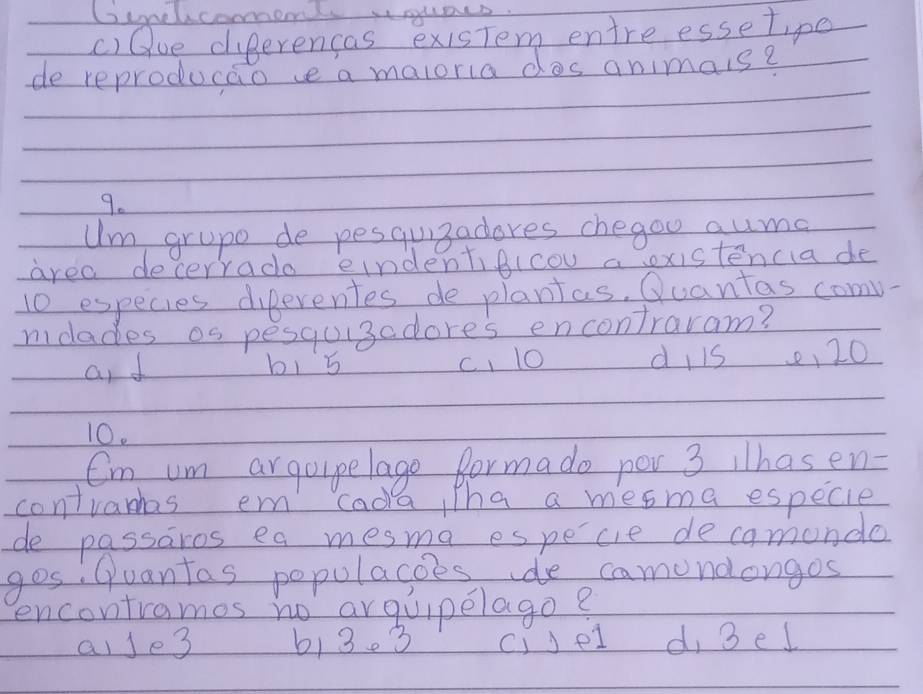 Geneticamente iguais.
c) Que diferenças existem entre esse tipo
de reprodução e a maioria dos animais?
9.
Um grupo de pesquizadores chegou auma
área de cerrado eindentificou a existência de
10 espécies diferentes de plantas. Quantas comu-
nidades os pesquizadores encontraram?
a) 1 b) 5 c) 10 d) 15 e) 20
10.
Em um arquipelago formado por 3 ilhas en-
contramos em cada ilha a mesma espécie
de passáros ea mesma espécie de camondo
gos. Quantas populacões de camondongos
encontramos no arquipélago?
a) 1 e 3 b) 3 e 3 c) 1 e 1 d) 3 e 1